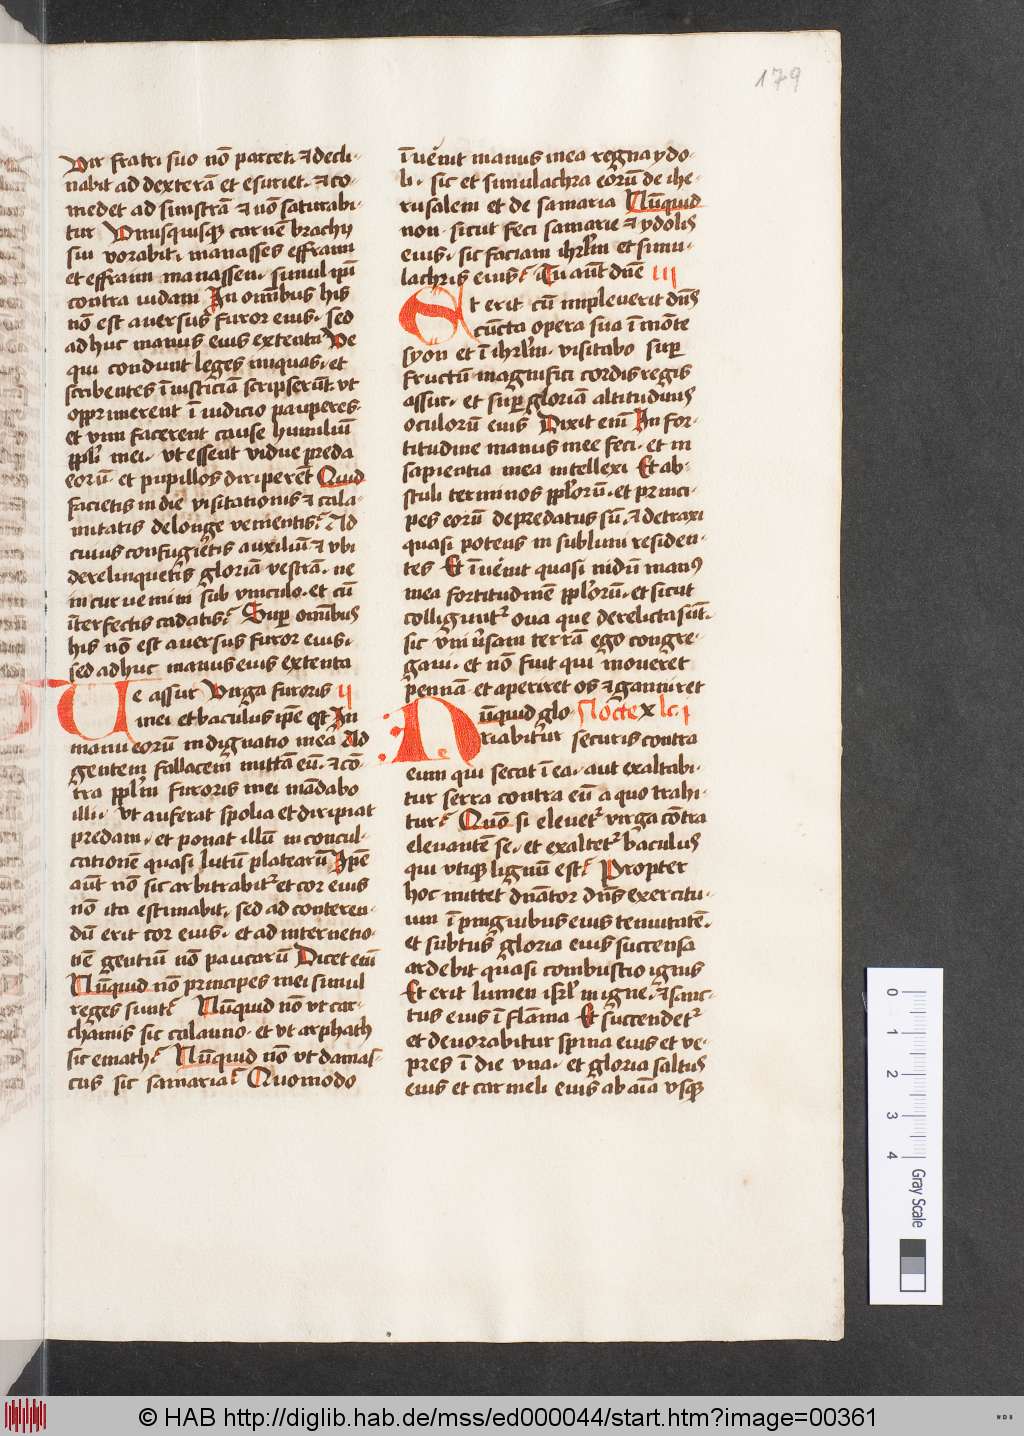 179
Vir fratri suo nō parcet. ⁊ decli-
nabit ad dexterā et esuriet. ⁊ co-
medet ad sinistrā ⁊ nō saturabi-
tur Vnusquisqꝫ carnē brachij
sui vorabit. manasses effraim
et effraim manassen. simul ipī
contra iudam In om̄ibus his
nō est aversus furor eius. sed
adhuc manus eius extenta Ve
qui condunt leges iniquas. et
scribentes ī iusticiam scripserūt. vt
opprimerent ī iudicio pauperes.
et vim facerent cause humiliū
ppl̄i mei. vt essent vidue preda
eorū. et pupillos diriperēt Quid
facietis in die visitationis ⁊ cala-
mitatis de longe venientis. Ad
cuius confugietis auxiliū ⁊ vbi
derelinquetis gloriā vestrā. ne
incurvemini sub vinculo. et cū
īterfectis cadatis. Super om̄ibus
his nō est aversus furor eius.
sed adhuc manus eius extenta
Ve assur Virga furoris ii
mei et baculus ip̄e est In
manu eorū indignatio mea Ad
gentem fallacem mittā eū. ⁊ cō-
tra ppl̄m furoris mei mādabo
illi. vt auferat spolia et diripiat
predam. et ponat illū in concul-
cationē quasi lutū platearū Ip̄e
aūt nō sic arbitrabit̄ et cor eius
nō ita estimabit. sed ad conteren-
dū erit cor eius. et ad internetio-
nē gentiū nō paucarū Dicet em̄
Nūquid nō principes mei simul
reges sunt. Nūquid nō vt car-
chamis sic calanno. et vt arphath
sic emath. Nūquid nō vt damas-
cus sic samaria. Quomodo
īvenit manus mea regna ydo-
li. sic et simulachra eorū de ihe-
rusalem et de samaria Nūquid
non sicut feci samarie ⁊ ydolis
eius. sic faciam ihrl̄m et simu-
lachris eius. Tu aūt dn̄e iii
Et erit cū impleverit dn̄s
cūcta opera sua ī mōte
syon et ī ihrl̄m. visitabo sup̄
fructū magnifici cordis regis
assur. et sup̄ gloriam altitudinis
oculorū eius Dixit em̄ In for-
titudine manus mee feci. et in
sapientia mea intellexi Et ab-
stuli terminos ppl̄orū. et princi-
pes eorū depredatus sū. ⁊ detraxi
quasi potens in sublimi residen-
tes Et īvenit quasi nidū manꝰ
mea fortitudinē ppl̄orū. et sicut
colligunt̄ ova que derelicta sūt.
sic vniv̄sam terrā ego congre-
gavi. et nō fuit qui moveret
pennā et aperiret os ⁊ ganniret
Nūquid glo- Nocte x lc i
riabitur securis contra
eum qui secat ī ea. aut exaltabi-
tur serra contra eū a quo trahi-
tur. Quō si elevet̄ virga cōtra
elevantē se. et exaltet̄ baculus
qui vtiqꝫ lignū est. Propter
hoc mittet dn̄ator dn̄s exercitu-
um ī pinguibus eius tenuitatē.
et subtus gloria eius succensa
ardebit quasi combustio ignis
Et erit lumen isrl̄ in igne. ⁊ sanc-
tus eius ī flāma Et succendet̄
et devorabitur spina eius et ve-
pres ī die vna. et gloria saltus
eius et carmeli eius ab aīa vsqꝫ
0
1
2
3
4
Gray Scale
© HAB http://diglib.hab.de/mss/ed000044/start.htm?image=00361